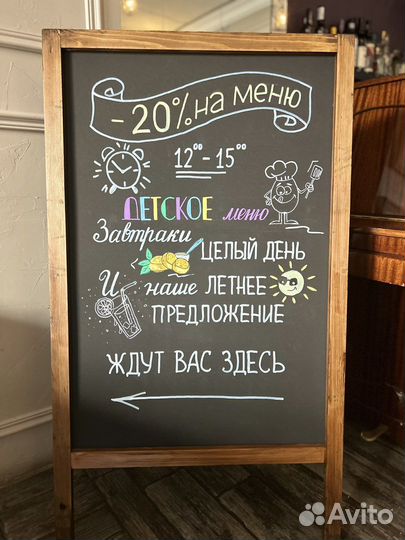 - 20% на меню
12⁰⁰ - 15⁰⁰
ДЕТСКОЕ меню
Завтраки
ЦЕЛЫЙ ДЕНЬ
И наше ЛЕТНЕЕ
ПРЕДЛОЖЕНИЕ
ЖДУТ ВАС ЗДЕСЬ
Avito